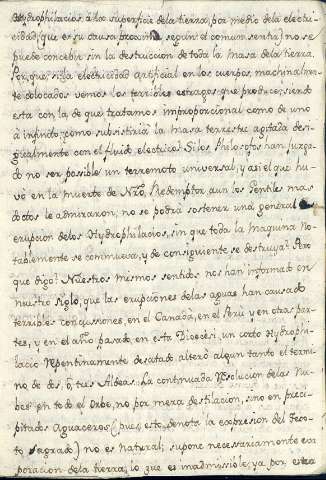 Hydrophilacios à la superficie de la tierra, por medio de la electri-
cidad (que es su causa proxima segun el comun sentir) no se
puede concebir sin la destruicion de toda la masa de la tierra.
Porque si la electricidad artificial en los cuerpos, machinalme-
te colocados vemos los terribles estragos que produce; siendo
esta con la de que tratamos improporcional como de uno
à infinito; como subsistiria la masa terrestre agitada desi-
gualmente con el fluido electrico? Si los Philosofos han juzga-
do no ser posible un terremoto universal, y asi el que hu-
vo en la muerte de Nro. Redemptor aun los Gentiles mas
doctos le admiraron; no se podrà sostener una general
erupcion de los Hydrophilacios, sin que toda la maquina no-
tablemente se conmueva, y de consiguiente se destruya? Pero
que digo? Nuestros mismos sentidos nos han informado en
nuestro siglo, que las erupciones de las aguas han causado
terribles concussiones, en el Canadà, en el Perù y en otras par-
tes, y en el año pasado en esta Diocesi, un corto Hydrophi-
lacio repentinamente desatado alterò algun tanto el termi-
no de dos, ò, tres Aldeas. La continuada resolucion de las Nu-
bes en todo el Orbe, no por mera destilacion, sino en preci-
pitados Aguaceros (pues esto denota la expresion del Tex-
to Sagrado) no es natural; supone necessariamente eva-
poracion de la tierra, lo que es inadmissible; ya por